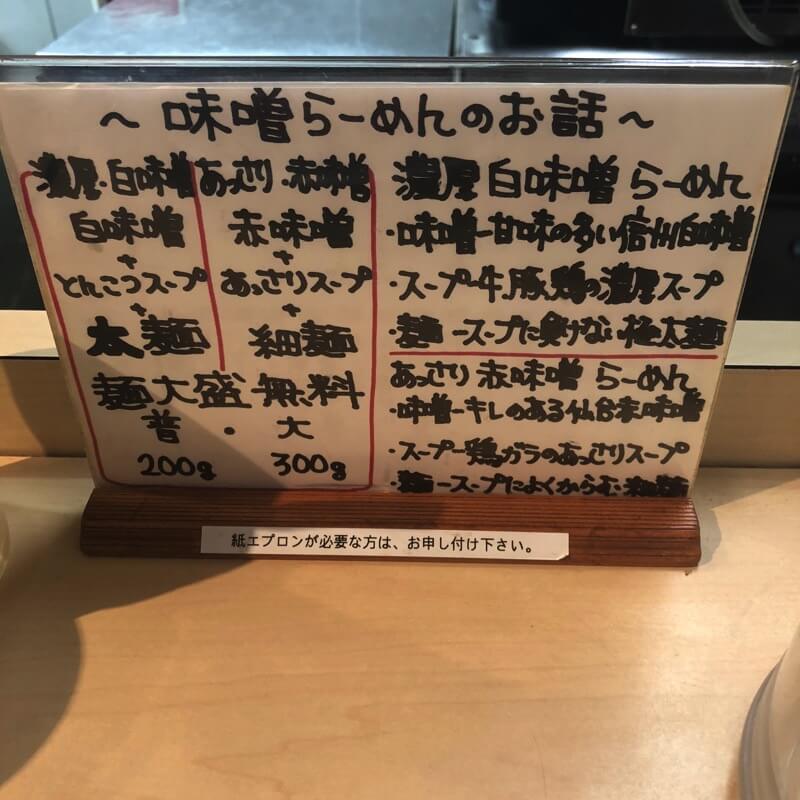 ～味噌らーめんのお話～
濃厚・白味噌
白味噌
+
とんこつスープ
+
太麺
あっさり・赤味噌
赤味噌
+
あっさりスープ
+
細麺
麺大盛無料
普・大
200g 300g
濃厚白味噌らーめん
・味噌ー甘味の多い信州白味噌
・スープー牛、豚、鶏の濃厚スープ
・麺ースープに負けない極太麺
あっさり赤味噌らーめん
・味噌ーキレのある仙台赤味噌
・スープー鶏ガラのあっさりスープ
・麺ースープによくからむ細麺
紙エプロンが必要な方は、お申し付け下さい。